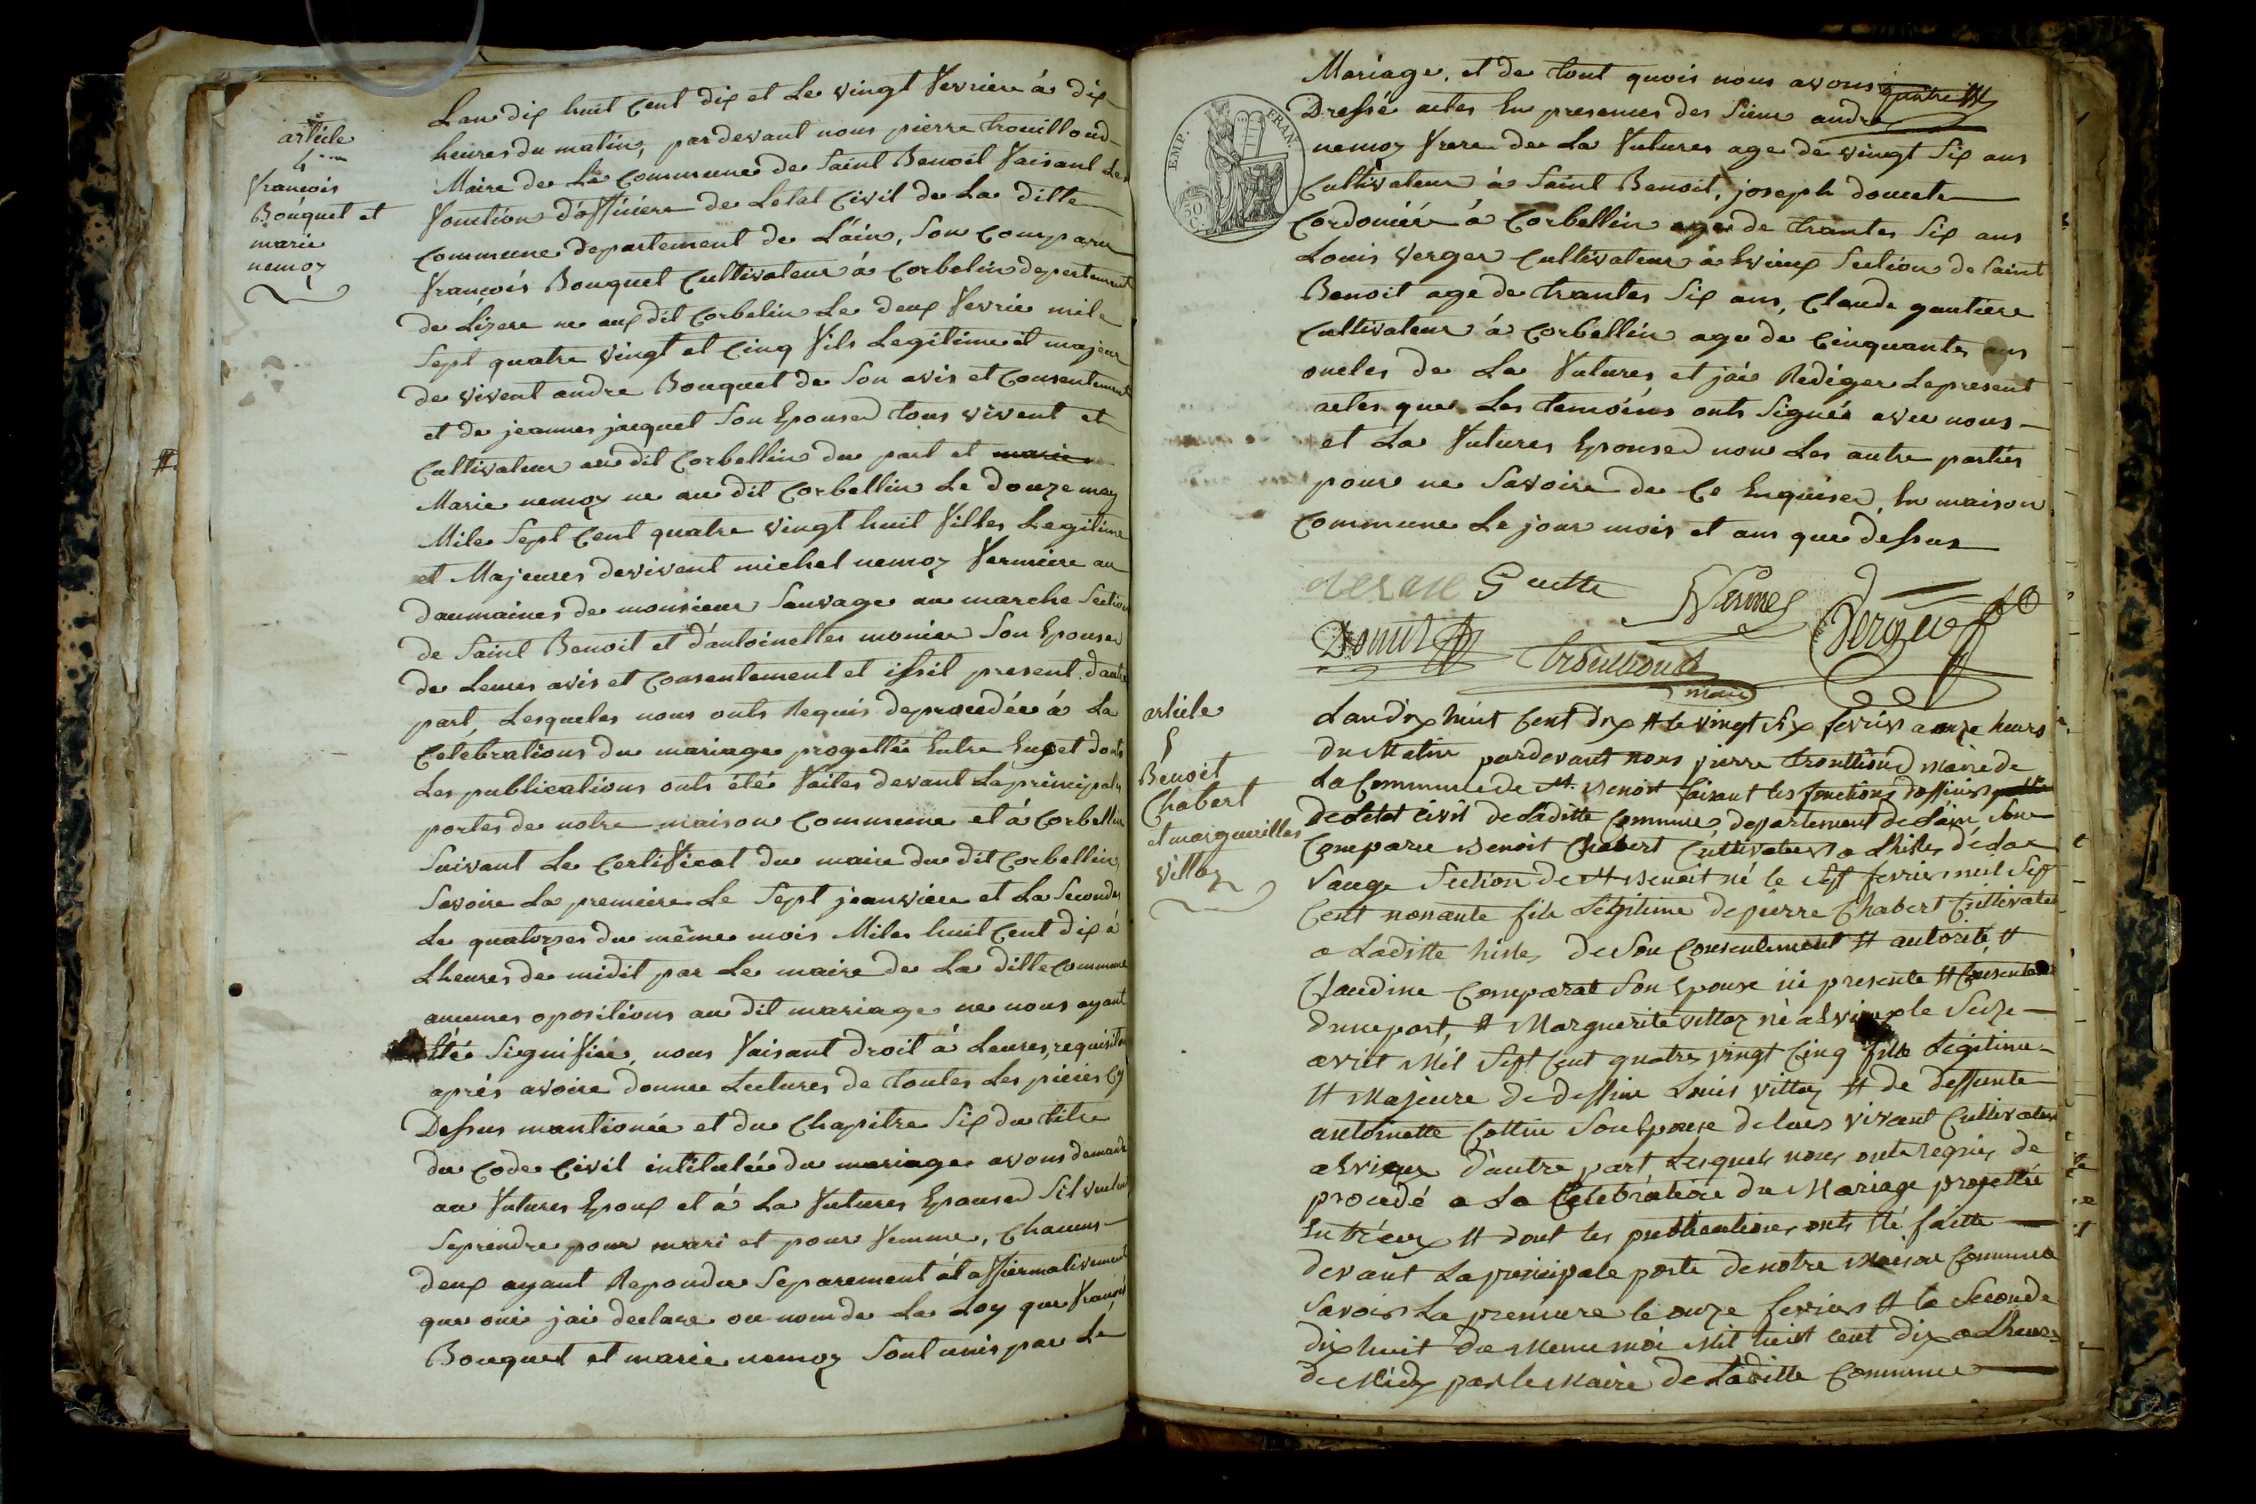 article
4
francois
Bouquet et
marie
nemoz
Lan dix huit Cent dix et Le vingt fevriere à dix
heures du matin, pardevant nous pierre trouilloud
Maire de La Commune de Saint Benoit faisant Les
fonction d'offiiere de Letat Civil de La ditte
Commune departement de L'ain, Son Comparu
francois Bouquet Cultivateur à Corbelin departement
de Lizere ne aux dit Corbelin Le deux fevrie mile
Sept quatre vingt et Cinq fils Legitime et majeur
de vivent andre Bouquet de Son avis et Consentement
et de jeannes jacquet Son Epouse tous vivent et
Cultivateur au dit Corbellin du part et marie
Marie nemoz ne au dit Corbellin Le douze may
Mile Sept Cent quatre vingt huit filles Legitime
et Majeures de vivent michel nemoz fermiere au
daumaines de monsieur Sauvage au marche Section
de Saint Benoit et d'antoinettes monier Son Epouse
de Leures avis et Consentement et issit present d'autre
part, Lesqueles nous onts Requis de procedée à La
Celebrations du mariage progettée Entre Eux et donts
Les publications onts été faites devant La principales
portes de notre maison Commune et à Corbellin
Suivant Le Certificat du maire du dit Corbellin,
Savoire La premiere Le Sept jeanviere et La Secondes
Le quatorzes du même mois Miles huit Cent dix à
Lheures de midit par Le maire de La ditte Commune
aucunes opositions au dit mariage ne nous ayant
Etée Signifiée, nous faisant droit à Leures requisition
aprés avoire donnee Lectures de toutes Les pieces Cy
Dessus mantionée et du Chapitre Six du titre
du Code Civil intitulée du mariages avons demande
au futures Epoux et à La futures Epouse Sil veulent
Se prendre pour mari et pour femme, Chacuns
deux ayant Repondu Separement et affiermativement
que oui jai declare ou nom de La Loy que francois
Bouquet et marie nemoz Sont unis par Le
EMP. FRAN.
50 C.
Mariage, et de tout quois nous avons
Dresse actes En presences des Sieur andre
nemoz frere de La futures age de vingt Six ans
Cultivateur à Saint Benoit, joseph doucet
Cordoniée à Corbellin age de trantes Six ans
Louis verger Cultivateur à Evieux Section de Saint
Benoit age de trantes Six ans, Claude gautiere
Cultivateur à Corbellin age de Cinquantes ans
oncles de La futures, et jai Rediger Le present
actes que Les temoins onts Signés avec nous
et La futures Epouse non Les autre parties
pour ne Savoire de Ce Enquise, En maison
Commune Le jour mois et ans que dessus
verger
trouilloud
maire
article
5
Benoit
Chabert
et marguerittes
Villoz
Lan dix huit Cent dix & le vingt Six fevrier a onze heurs
du Matin pardevants nous pierre trouilloud Maire de
La Commune de St. Benoit faisant les fonctions d'offiiers
de Letat civil de Laditte Commune, departement de Lain Son
Comparu Benoit Chabert Cultivateur a Lhiste de la
Sauge Section de St Benoit né le Sept fevrier mil Sept
Cent nonante fils Legitime de pierre Chabert Cultivateur
a Laditte histe, De Son Consentement & autorité, &
Claudine Comparat Son Epouse ici presente & Consentente
dune part, & Marguerite villoz né a Evieux le Seize
avril Mil Sept Cent quatre vingt Cinq fille Legitime
& Majeure de deffunt Louis villoz & de deffunte
antoinette Cottin Son Epouse de leurs vivant Cultivateur
a Evieux d'autre part Lesquels nous onts requis de
procedé a La Celebration du Mariage projettée
Entréeux & dont les publications onts été faitte
devant La principale porte de notre Maison Commune
Savoir La premiere le onze fevrier & la Seconde
dix huit du Meme moi Mil huit cent dix a Lheure
de Midy par le Maire de Laditte Commune